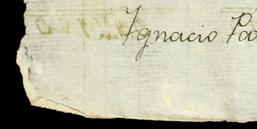 Ignacio Pa